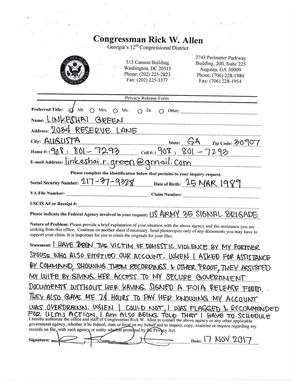 Congressman Rick W. Allen
Georgia's 12th Congressional District
513 Cannon Building
Washington, DC 20515
Phone: (202) 225-2823
Fax: (202) 225-3377
2743 Perimeter Parkway
Building 200, Suite 225
Augusta, GA 30909
Phone: (706) 228-1980
Fax: (706) 228-1954
Privacy Release Form
Preferred Title: Mr. Mrs. Ms. Dr. Other:
Name: LINKESHAI GREEN
Address: 2034 RESERVE LANE
City: AUGUSTA State: GA Zip Code: 30907
Home #: 908, 801-7293 Cell #: 908, 801-7293
E-mail Address: linkeshai.r.green@gmail.com
Please complete the identification below that pertains to your inquiry request.
Social Security Number: Date of Birth: 25 MAR 1989
VA File Number: Claim Number:
USCIS A# or Receipt #:
Please indicate the Federal Agency involved in your request: US ARMY 35 SIGNAL BRIGADE
Nature of Problem: Please provide a brief explanation of your situation with the above agency and the assistance you are
seeking from this office. Continue on another sheet if necessary. Send photocopies only of any documents you may have to
support your claim. It is important for you to retain the originals for your files.
Statement: I HAVE BEEN THE VICTIM OF DOMESTIC VIOLENCE BY MY FORMER
SPOUSE WHO ALSO EMPTIED OUR ACCOUNT. WHEN I ASKED FOR ASSISTANCE
BY COMMAND, SHOWING THEM RECORDINGS & OTHER PROOF, THEY ASSISTED
MY WIFE BY GIVING HER ACCESS TO MY SECURE GOVERNMENT
DOCUMENTS WITHOUT HER HAVING SIGNED A FOIA RELEASE FORM.
THEY ALSO GAVE ME 24 HOURS TO PAY HER KNOWING MY ACCOUNT
WAS OVERDRAWN. WHEN I COULD NOT, I WAS FLAGGED & RECOMMENDED
FOR UCMJ ACTION. I AM ALSO BEING TOLD THAT I HAVE TO SCHEDULE
I hereby authorize the office and staff of Congressman Rick W. Allen to contact the above agency or any other applicable
government agency, whether it be federal, state or local on my behalf and to inspect, copy, examine or inquire regarding any
records on file, with such agency or entity
Privacy Act.
Signature: Date: 17 NOV 2017